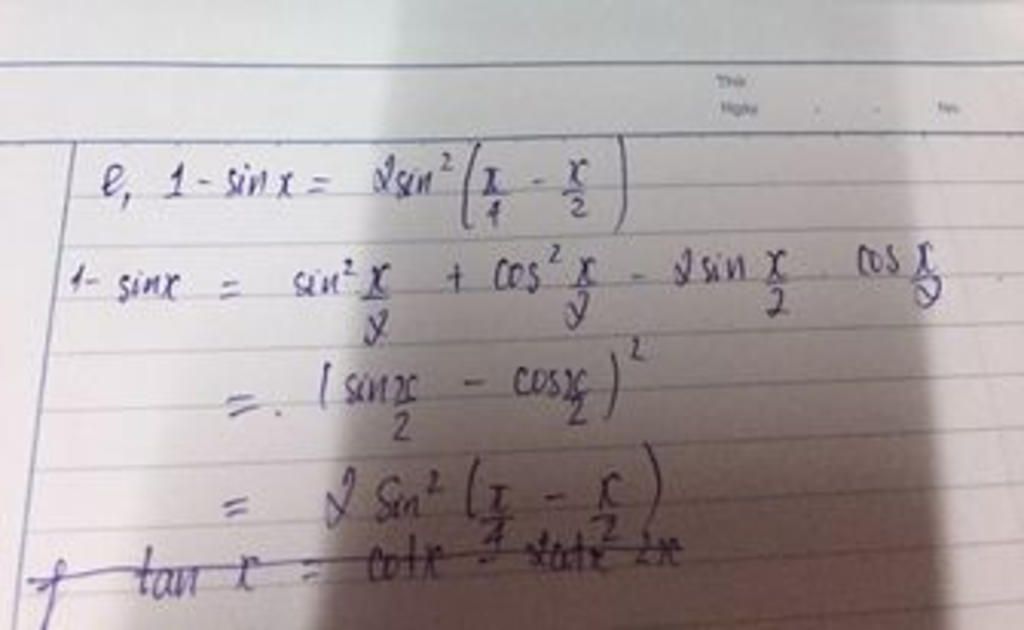 Thứ
Ngày . . No.
e, 1 - sin x = 2sin² (π/4 - x/2)
1 - sinx = sin² x/2 + cos² x/2 - 2sin x/2 cos x/2
=. (sin x/2 - cos x/2)²
= 2 sin² (π/4 - x/2)
f tan x = cotx - 2cotx 2x